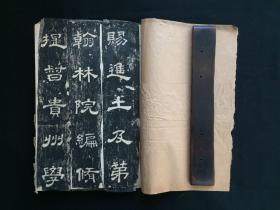 賜進士及第
翰林院編脩
提督貴州學